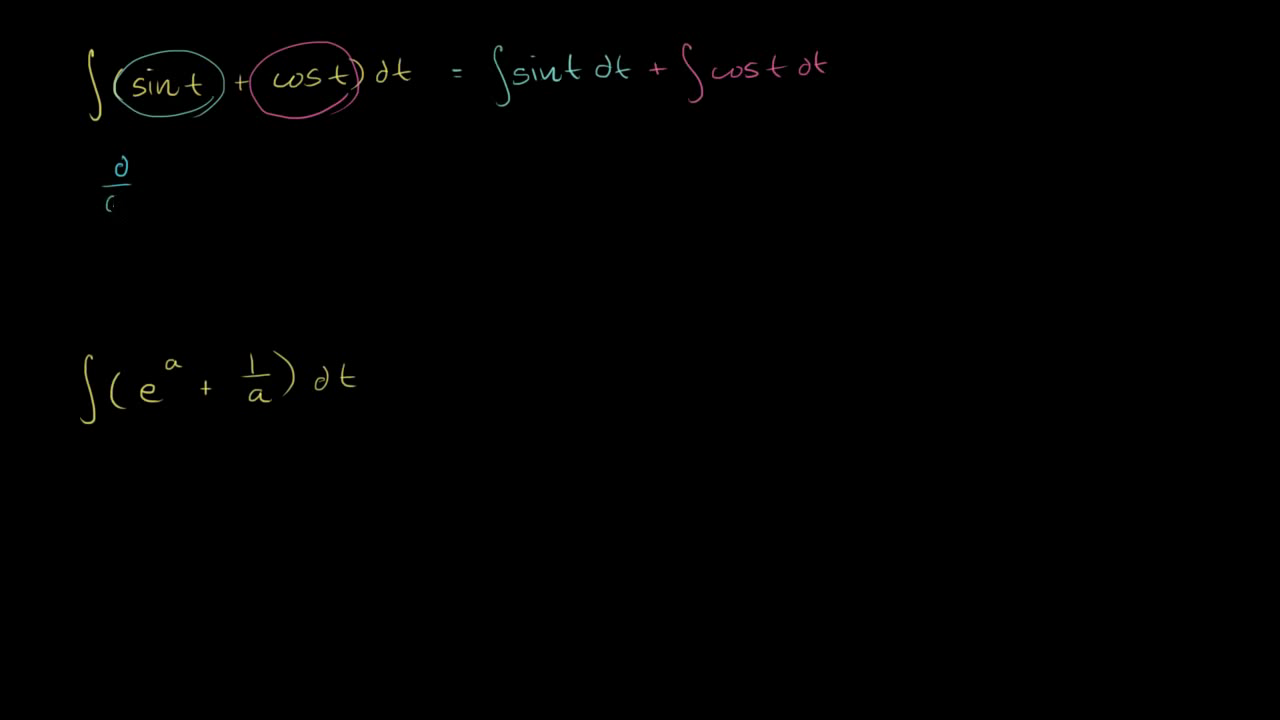 ∫(sin t + cos t) dt = ∫sin t dt + ∫cos t dt
d
∫(e^a + 1/a) dt